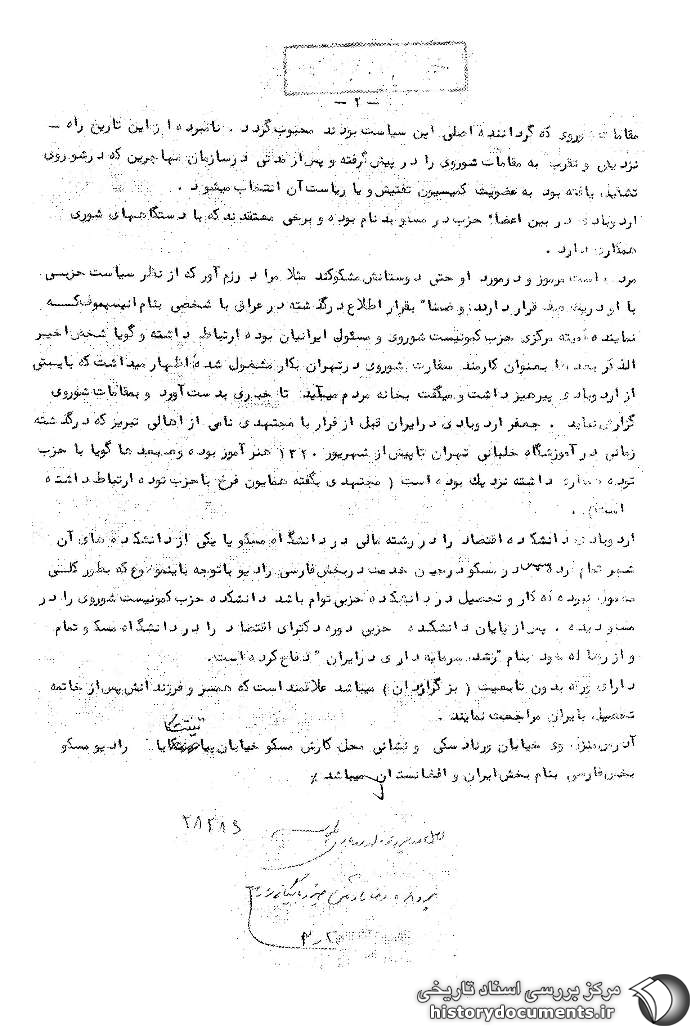 - ۲ -
مقامات شوروی که گرداننده اصلی این سیاست بودند محبوب گردد . نامبرده از این تاریخ راه -
نزدیکی و تقرب به مقامات شوروی را در پیش گرفته و پس از مدتی در سازمان مهاجرین که در شوروی
تشکیل یافته بود به عضویت کمیسیون تفتیش و یا ریاست آن انتخاب میشود .
اردوبادی در بین اعضاء حزب در مسکو بد نام بوده و برخی معتقدند که با دستگاههای شوروی
همکاری دارد .
مردی است مرموز و در مورد او حتی دوستانش مشکوکند مثلا مراد رزم آور که از نظر سیاست حزبی
با او در یک صف قرار دارند و ضمنا" بقرار اطلاع در گذشته در عراق با شخصی بنام انیسیموف که
نماینده کمیته مرکزی حزب کمونیست شوروی و مسئول ایرانیان بوده ارتباط داشته و گویا شخص اخیر
الذکر بعدها بعنوان کارمند سفارت شوروی در تهران بکار مشغول شده اظهار میداشت که بایستی
از اردوبادی پرهیز داشت و میگفت بخانه مردم میآید تا خبری بدست آورد و بمقامات شوروی
گزارش نماید . جعفر اردوبادی در ایران قبل از فرار با مجتهدی نامی از اهالی تبریز که در گذشته
زمانی در آموزشگاه خلبانی تهران تا پیش از شهریور ۱۳۲۰ هنرآموز بوده و بعدها گویا با حزب
توده همکاری داشته نزدیک بوده است ( مجتهدی بگفته همایون فرخ با حزب توده ارتباط داشته
است) .
اردوبادی دانشکده اقتصاد را در رشته مالی در دانشگاه مسکو یا یکی از دانشکده های آن
شهر تمام کرده سپس در مسکو در حین خدمت در بخش فارسی رادیو با توجه باینموضوع که بطور کلی
معمول نبوده که کار و تحصیل در دانشکده حزبی توام باشد دانشکده حزب کمونیست شوروی را در
مسکو دیده . پس از پایان دانشکده حزبی دوره دکترای اقتصاد را در دانشگاه مسکو تمام
و از رساله خود بنام "رشد سرمایه داری در ایران" دفاع کرده است.
دارای ورقه بدون تابعیت ( بزگراژدان ) میباشد علاقمند است که همسر و فرزندانش پس از خاتمه
تحصیل بایران مراجعت نمایند .
آدرس منزل وی خیابان ورنادسکی و نشانی محل کارش مسکو خیابان پیاتنیتسکایا رادیو مسکو
بخش فارسی بنام بخش ایران و افغانستان میباشد ٪
۲۸۲۸۶
مرکز بررسی اسناد تاریخی
historydocuments.ir